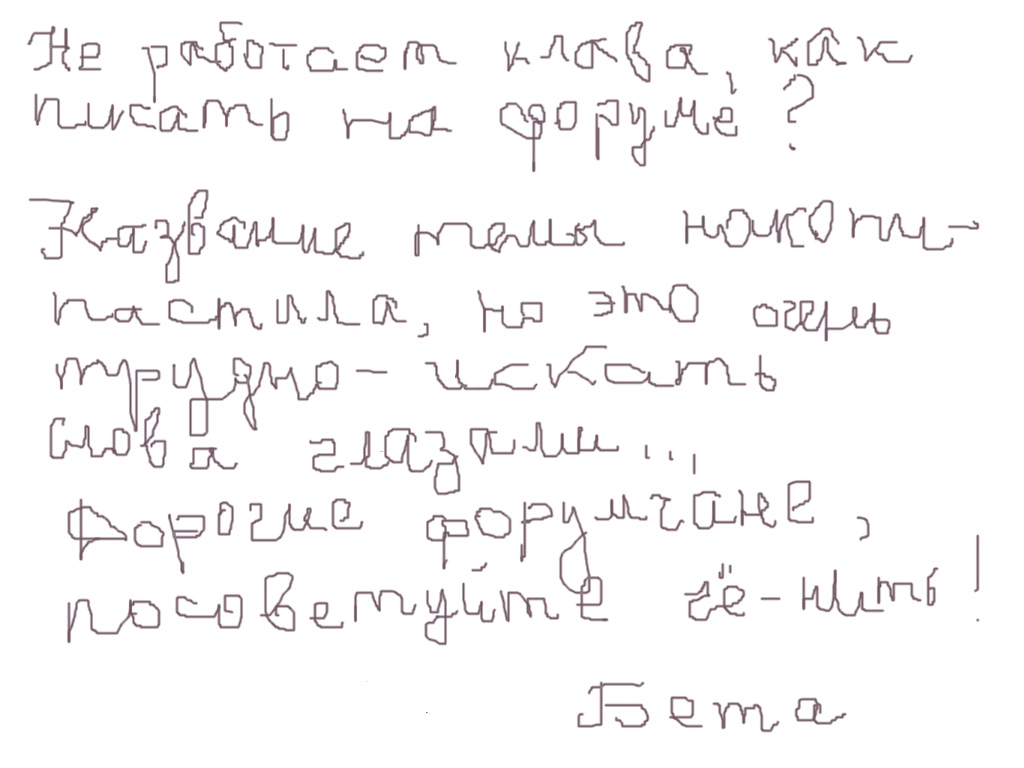 Не работает клава, как
писать на форуме?
Название темы накопи-
пастила, но это очень
трудно - искать
слова глазами...
Дорогие форумчане,
посоветуйте чё-нить!
Бета